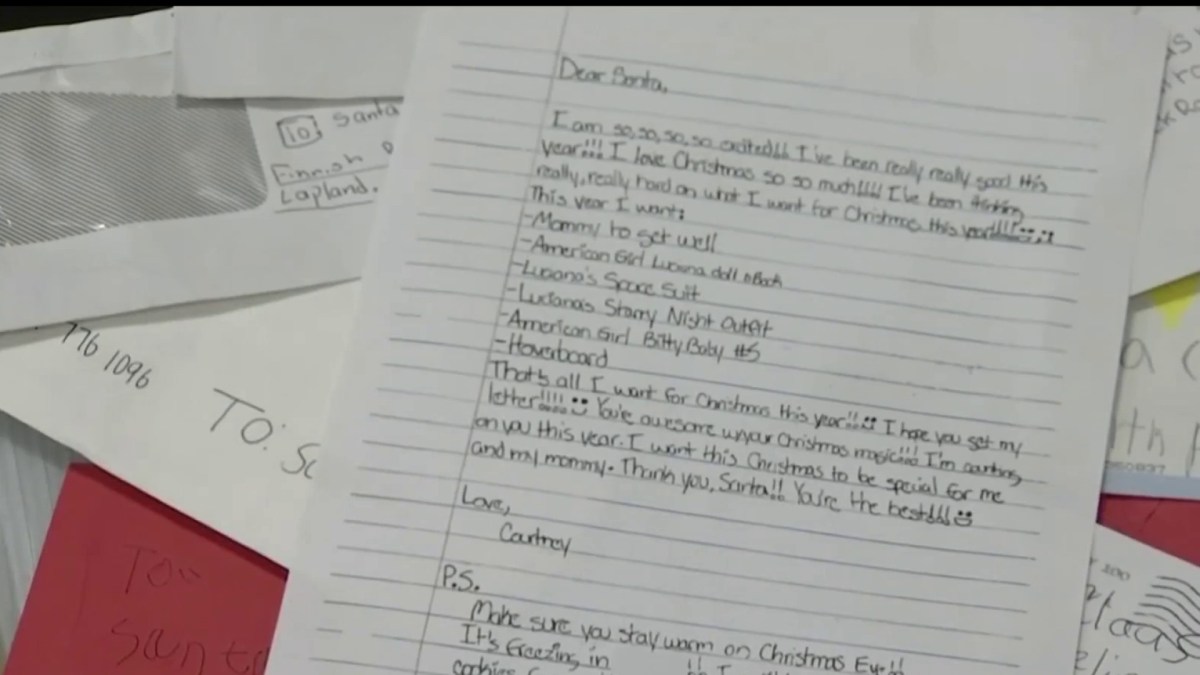 Dear Santa,
I am so, so, so, so excited!!! I've been really really good this
year!!! I love Christmas so so much!!!! I've been thinking
really, really hard on what I want for Christmas this year!!!!
This year I want:
-Mommy to get well
-American Girl Luciana doll & Book
-Luciana's Space Suit
-Luciana's Starry Night Outfit
-American Girl Bitty Baby #5
-Hoverboard
That's all I want for Christmas this year!!! I hope you get my
letter!!!! You're awesome w/your Christmas magic!!! I'm counting
on you this year. I want this Christmas to be special for me
and my mommy. Thank you, Santa!! You're the best!!!!
Love,
Courtney
P.S.
Make sure you stay warm on Christmas Eve!!
It's freezing in
To Santa
Finnish
Lapland.
776 1096
TO:
To:
Santa